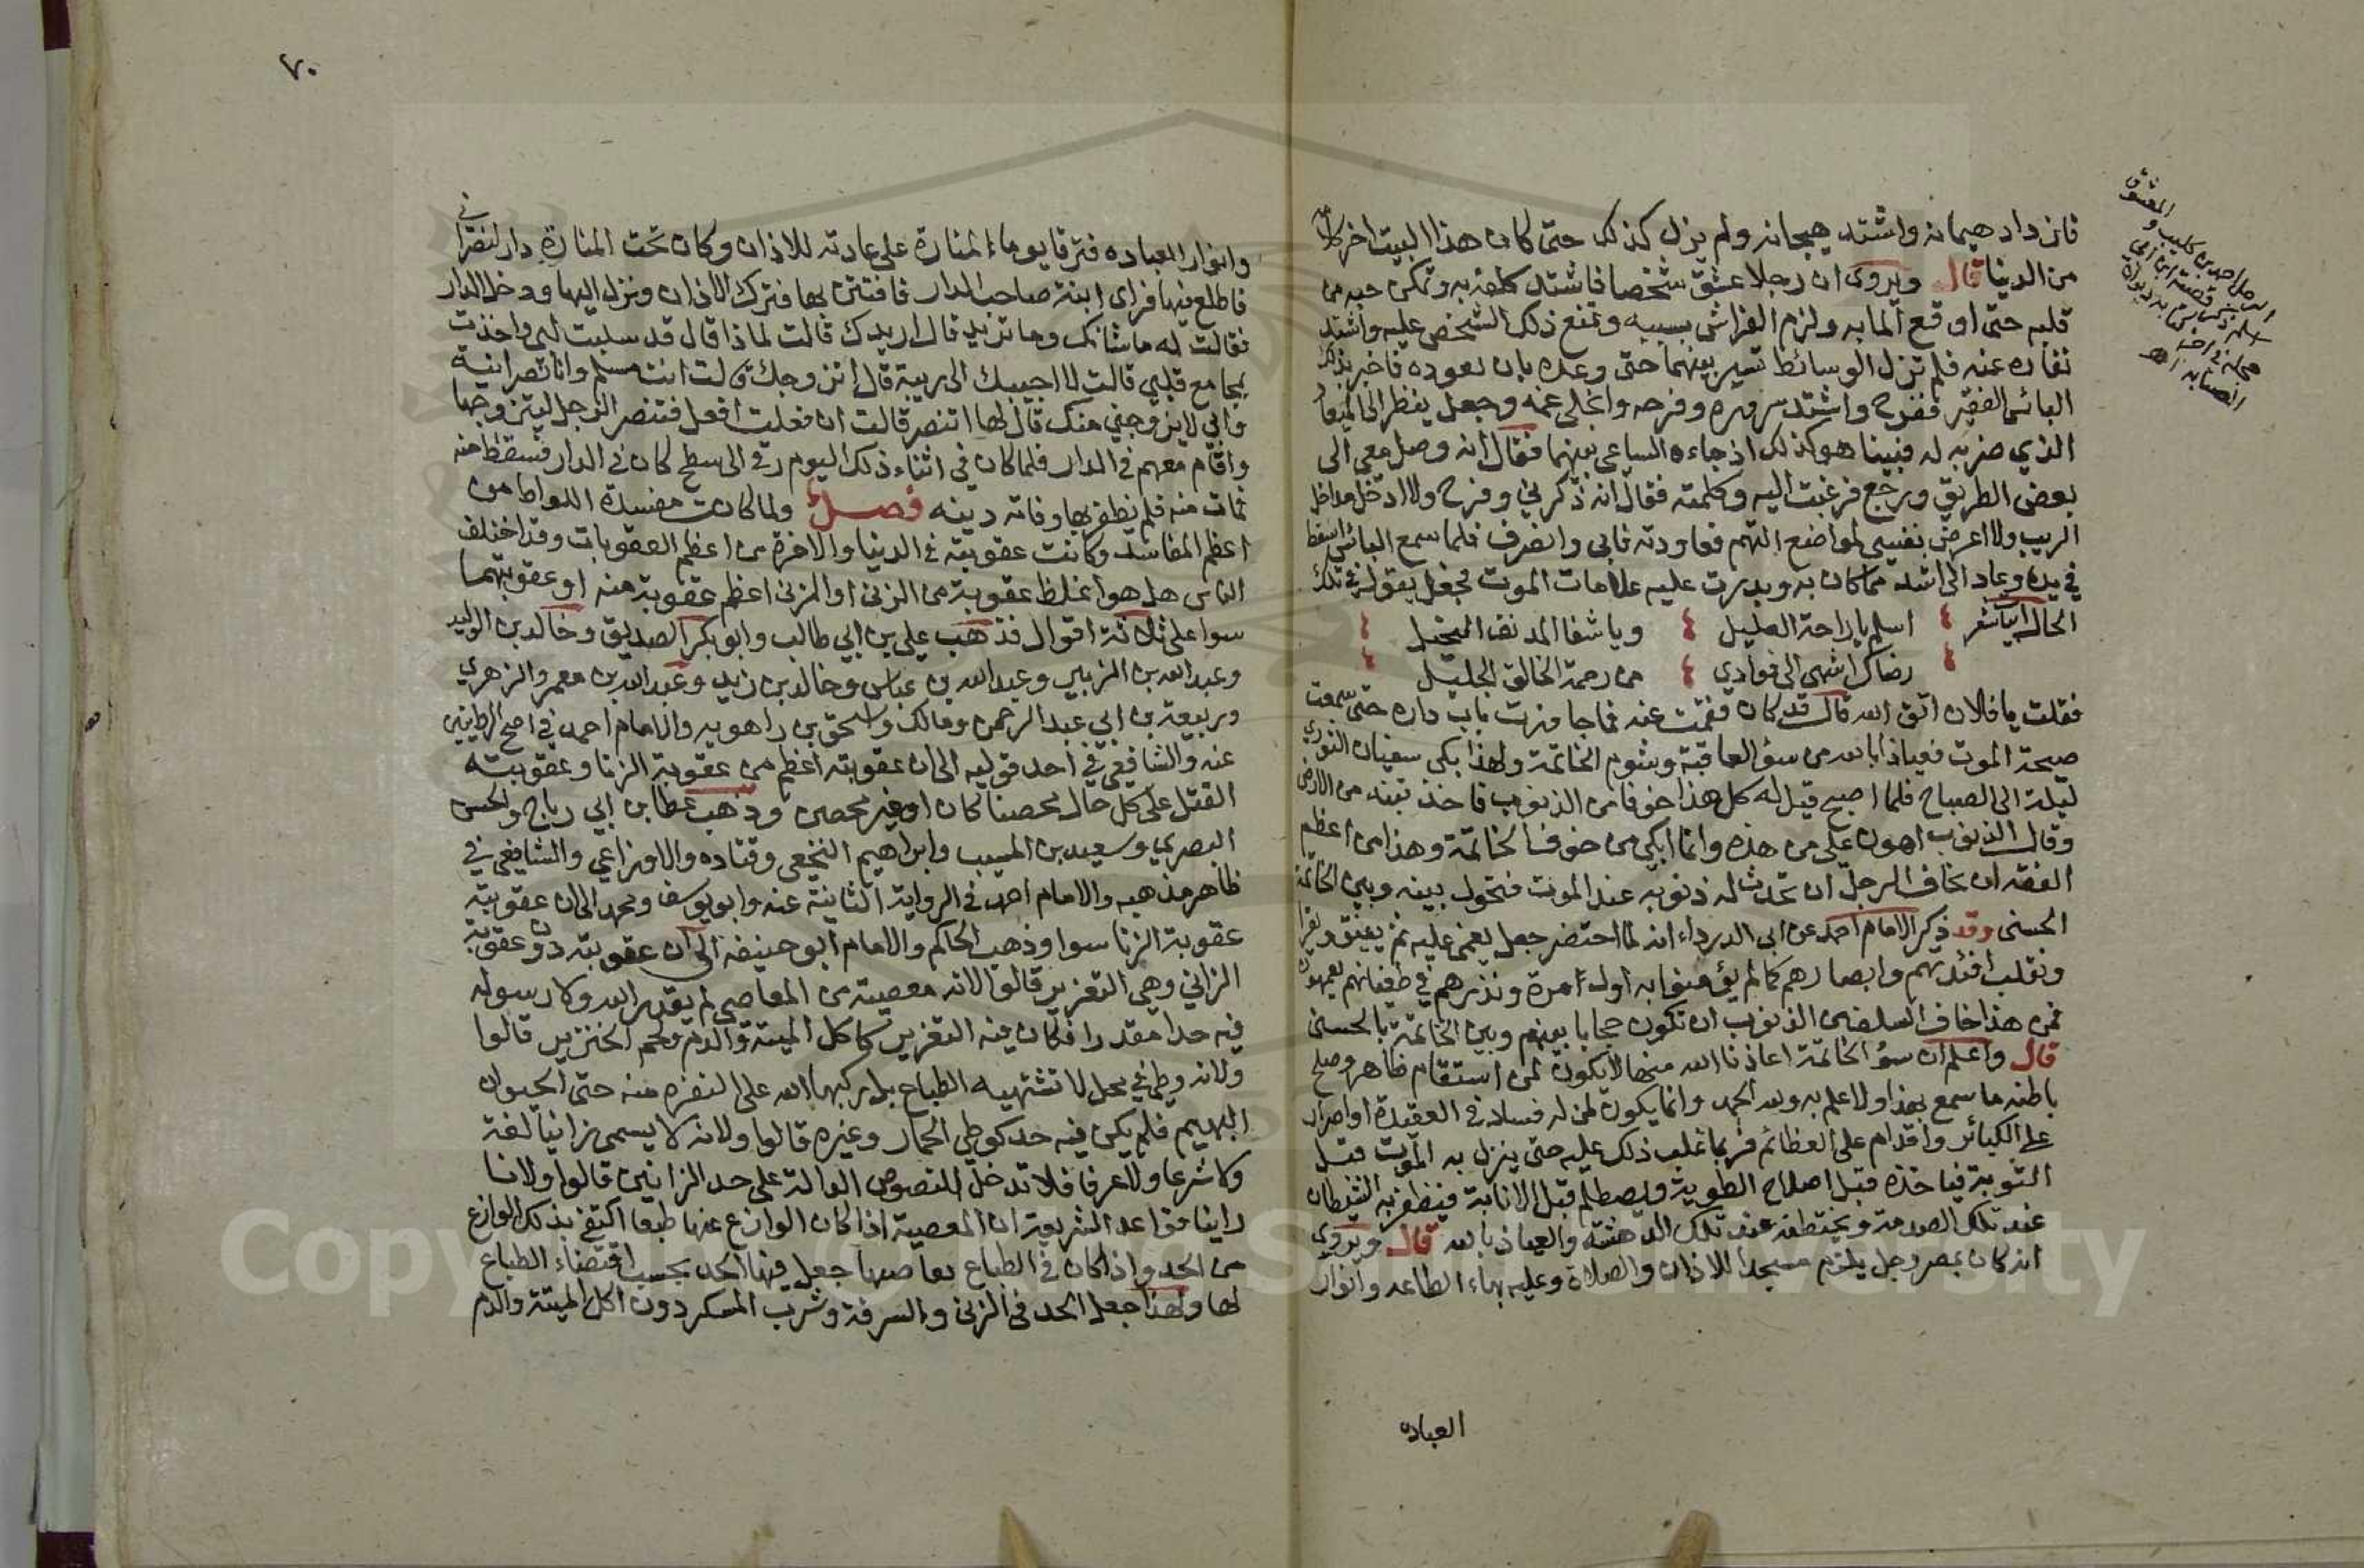 فازداد هيمانه واشتد هيجانه ولم يزل كذلك حتى كان هذا البيت اخر كلامه
من الدنيا قال ويروى ان رجلا عشق شخصا فاشتد كلفه به وتمكن حبه من
قلبه حتى اوقع الما به ولزم الفراش بسببه وتمنع ذلك الشخص عليه واشتد
نفاره عنه فلم تزل الوسائط تسير بينهما حتى وعده بان يعوده فاخبر بذلك
البائس الفقير ففرح واشتد سروره وفرحه وانجلى غمه وجعل ينظر الى الميعاد
الذي ضربه له فبينا هو كذلك اذ جاءه الساعي بينهما فقال انه وصل معي الى
بعض الطريق ورجع فرغبت اليه وكلمته فقال انه ذكرني وفرح ولا ادخل مداخل
الريب ولا اعرض بنفسي لمواضع التهم فعاودته فابى وانصرف فلما سمع البائس اسقط
في يده وعاد الى اشد مما كان به وبدرت عليه علامات الموت فجعل يقول في تلك
الحال ابيات شعر اسلم يا راحة العليل ويا شفا المدنف النحيل
رضاك اشهى الى فوادي من رحمة الخالق الجليل
فقلت يا فلان اتق الله قال قد كان فقمت عنه فما جاوزت باب داره حتى سمعت
صيحة الموت فعياذا بالله من سؤ العاقبة وشوم الخاتمة ولهذا بكى سفيان الثوري
ليلة الى الصباح فلما اصبح قيل له كل هذا خوفا من الذنوب فاخذ تبنه من الارض
وقال الذنوب اهون علي من هذه وانما ابكي من خوف الخاتمة وهذا من اعظم
الفقه ان يخاف الرجل ان تحدث له ذنوبه عند الموت فتحول بينه وبين الخاتمة
الحسنى وقد ذكر الامام احمد عن ابي الدرداء انه لما احتضر جعل يغمى عليه ثم يفيق ويقرا
ونقلب افئدتهم وابصارهم كما لم يؤمنوا به اول مرة ونذرهم في طغيانهم يعمهون
فمن هذا خاف السلف من الذنوب ان تكون حجابا بينهم وبين الخاتمة بالحسنى
قال واعلم ان سؤ الخاتمة اعاذنا الله منها لا يكون لمن استقام ظاهره وصلح
باطنه ما سمع بهذا ولا علم به ولله الحمد وانما يكون لمن له فساد في العقيدة او اصرار
على الكبائر واقدام على العظائم فربما غلب ذلك عليه حتى ينزل به الموت قبل
التوبة فياخذه قبل اصلاح الطوية ويصطلم قبل الانابة فيظفر به الشيطان
عند تلك الصدمة ويختطفه عند تلك الدهشة والعياذ بالله قال ويروى
انه كان بمصر رجل يلزم مسجدا للاذان والصلاة وعليه بهاء الطاعه وانوار
العباده
الرجل احمد بن كليب والمعشوق
اسلم
٧٠
وانوار العباده فترقا يوماء المنارة على عادته للاذان وكان تحت المنارة دار لنصراني
فاطلع فيها فراى ابنة صاحب الدار فافتتن بها فترك الاذان ونزل اليها ودخل الدار
فقالت له ما شانك وما تريد قال اريدك قالت لماذا قال قد سلبت لبي واخذت
بمجامع قلبي قالت لا اجيبك الى ريبة قال اتزوجك قالت انت مسلم وانا نصرانية
وابي لا يزوجني منك قال لها اتنصر قالت ان فعلت افعل فتنصر الرجل ليتزوجها
واقام معهم في الدار فلما كان في اثناء ذلك اليوم رقى الى سطح كان في الدار فسقط منه
فمات منه فلم يظفر بها وفاته دينه فصل ولما كانت مفسدة اللواط من
اعظم المفاسد وكانت عقوبته في الدنيا والاخرة من اعظم العقوبات وقد اختلف
الناس هل هو اغلظ عقوبة من الزنى او الزنى اعظم عقوبة منه او عقوبتهما
سوا على ثلاثة اقوال فذهب علي بن ابي طالب وابو بكر الصديق وخالد بن الوليد
وعبد الله بن الزبير وعبد الله بن عباس وخالد بن زيد وعبد الله بن معمر والزهري
وربيعة بن ابي عبد الرحمن ومالك واسحق بن راهويه والامام احمد في اصح الروايتين
عنه والشافعي في احد قوليه الى ان عقوبته اعظم من عقوبة الزنا وعقوبته
القتل على كل حال محصنا كان او غير محصن وذهب عطا بن ابي رباح والحسن
البصري وسعيد بن المسيب وابراهيم النخعي وقتاده والاوزاعي والشافعي في
ظاهر مذهبه والامام احمد في الرواية الثانية عنه وابو يوسف ومحمد الى ان عقوبته
عقوبة الزنا سوا وذهب الحاكم والامام ابو حنيفه الى ان عقوبته دون عقوبة
الزاني وهي التعزير قالوا لانه معصية من المعاصي لم يقدر الله ولا رسوله
فيه حدا مقدرا فكان فيه التعزير كاكل الميتة والدم ولحم الخنزير قالوا
ولانه وطئ في محل لا تشتهيه الطباع بل ركبها الله على النفره منه حتى الحيوان
البهيم فلم يكن فيه حد كوطي الحمار وغيره قالوا ولانه لا يسمى زانيا لغة
ولا شرعا ولا عرفا فلا تدخل النصوص الدالة على حد الزانيين قالوا ولانا
راينا قواعد الشريعة ان المعصية اذا كان الوازع عنها طبعا اكتفى بذلك الوازع
من الحد واذا كان في الطباع تقاضيها جعل فيها الحد بحسب اقتضاء الطباع
لها ولهذا جعل الحد في الزنى والسرقة وشرب المسكر دون اكل الميتة والدم
Copyright © King Saud University